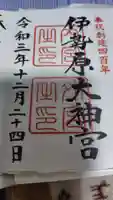 奉祝創建四百年
伊勢原大神宮
令和三年十二月二十四日